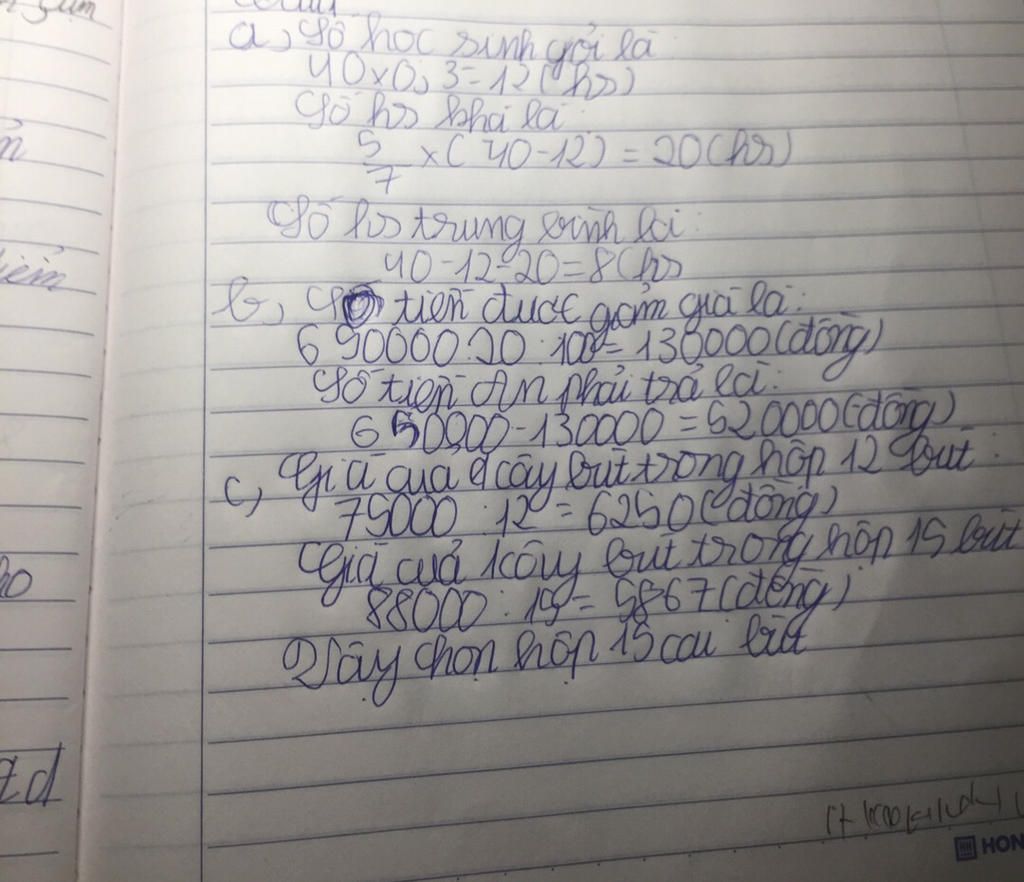 a, Số học sinh giỏi là
40×0,3=12(hs)
Số hs khá là
5/7 ×( 40-12) = 20(hs)
Số hs trung bình là:
40-12-20=8(hs
b, Số tiền được giảm giá là:
650000.20:100=130000(đồng)
Số tiền An phải trả là:
650000-130000=520000(đồng)
c, Giá của 1 cây bút trong hộp 12 bút:
75000:12=6250(đồng)
Giá của 1 cây bút trong hộp 15 bút
88000:15=5867(đồng)
Vậy chọn hộp 15 cái bút
HON